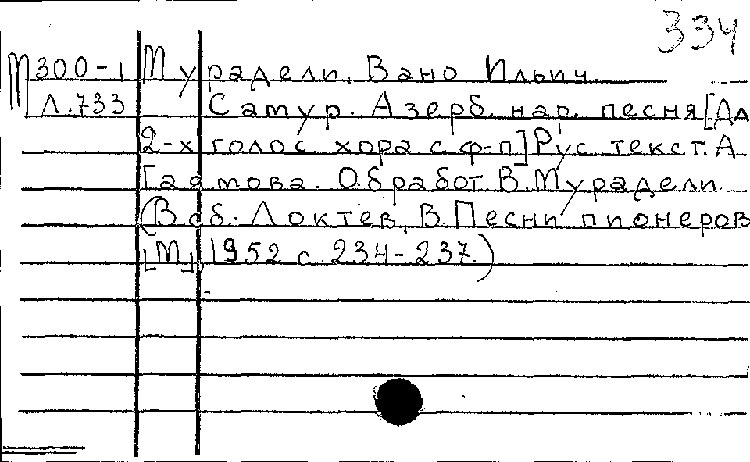 334
М300-1 Мурадели, Вано Ильич.
Л.733 Сатур. Азерб. нар. песня [Дл
2-х голос хора с ф-п] Рус текст. А.
Гаямова. Обработ. В. Мурадели.
(В сб.: Локтев, В. Песни пионеров
[М], 1952 с. 234-237.)